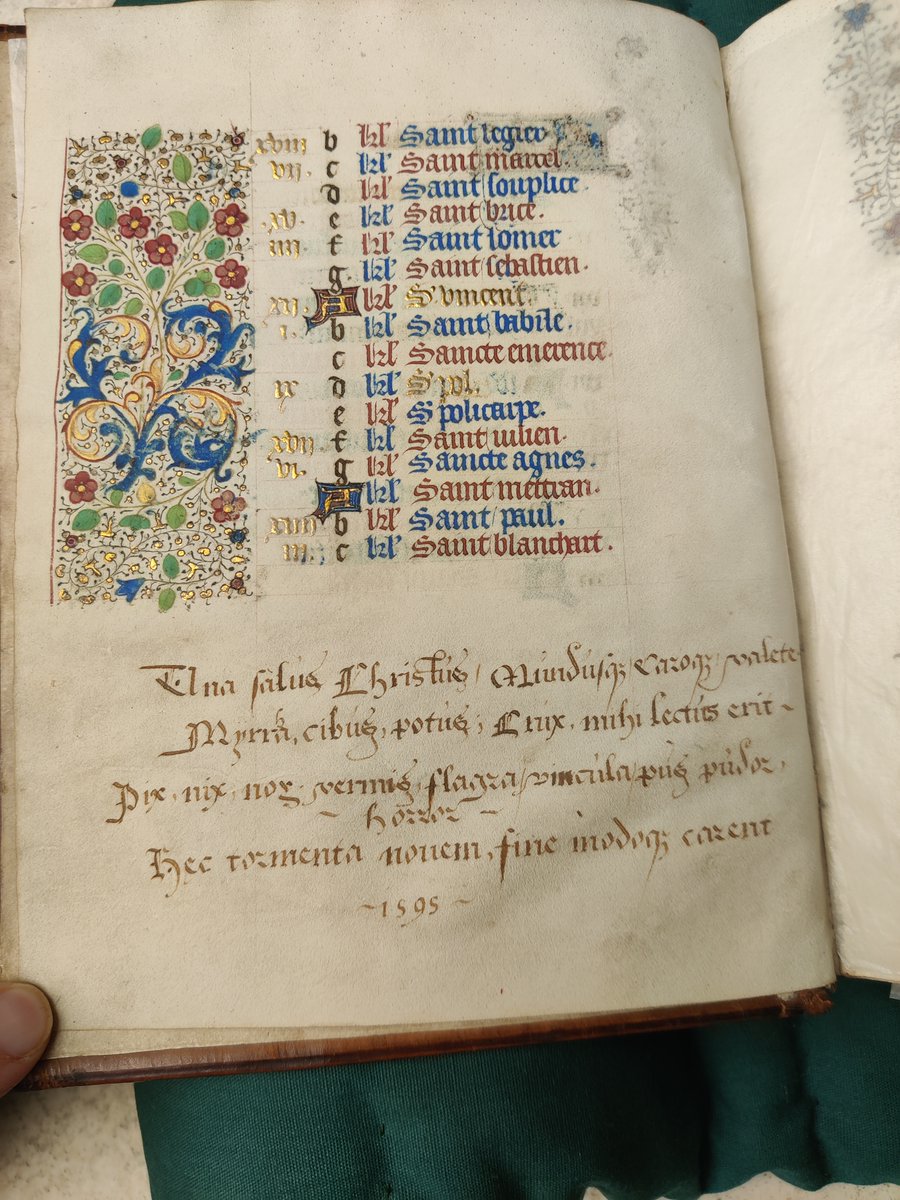 xviii b kl' Saint legier
vii. c kl' Saint marcel.
d kl' Saint souplice.
xv. e kl' Saint brice.
iiii. f kl' Saint lomer
g. kl' Saint sebastien.
xii. A kl' S' vincent.
i. b kl' Saint babile.
c kl' Saincte emerence.
ix d kl' S' pol.
e kl' S' policarpe.
xvii f kl' Saint iulien.
vi. g kl' Saincte agnes.
A kl' Saint mettran.
xiiii b kl' Saint paul.
iii. c kl' Saint blanchart.
Una salus Christus, Mundusq; Caroq; valete
Myrrha, cibus, potus, Crux, mihi lectus erit ~
Pix, nix, nox, vermis, flagra, vincula, pus, pudor,
~ horror ~
Hec tormenta novem, fine modoq; carent
~ 1595 ~